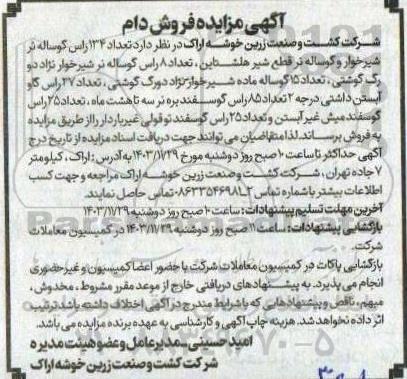 آگهی مزایده فروش دام
شرکت کشت و صنعت زرین خوشه اراک در نظر دارد تعداد ۱۳۴ راس گوساله نر
شیرخوار و گوساله نر قطع شیر هلشتاین ، تعداد ۸ راس گوساله نر شیرخوار نژاد دو
رگ گوشتی ، تعداد ۱۵ گوساله ماده شیرخوار نژاد دورگ گوشتی ، تعداد ۲۷ راس گاو
آبستن داشتی درجه ۲ تعداد ۸۵ راس گوسفند بره نر سه تا هشت ماه ، تعداد ۲۵ راس
گوسفند میش غیر آبستن و تعداد ۲۵ راس گوسفند توقولی غیرباردار را از طریق مزایده
به فروش برساند. لذا متقاضیان می توانند جهت دریافت اسناد مزایده از تاریخ درج
آگهی حداکثر تا ساعت ۱۰ صبح روز دوشنبه مورخ ۱۴۰۳/۱۱/۲۹ به آدرس : اراک ، کیلومتر
۷ جاده تهران ، شرکت کشت و صنعت زرین خوشه اراک مراجعه و جهت کسب
اطلاعات بیشتر با شماره تماس ۲-۰۸۶۳۳۵۴۶۹۸۱ تماس حاصل نمایند.
آخرین مهلت تسلیم پیشنهادات: ساعت ۱۰ صبح روز دوشنبه ۱۴۰۳/۱۱/۲۹
بازگشایی پیشنهادات: ساعت ۱۱ صبح روز دوشنبه ۱۴۰۳/۱۱/۲۹ در کمیسیون معاملات
شرکت.
بازگشایی پاکات در کمیسیون معاملات شرکت با حضور اعضا کمیسیون و غیرحضوری
انجام می پذیرد. به پیشنهادهای دریافتی خارج از موعد مقرر مشروط، مخدوش،
مبهم، ناقص و پیشنهادهایی که با شرایط مندرج در آگهی اختلاف داشته باشد ترتیب
اثر داده نخواهد شد. هزینه چاپ آگهی و کارشناسی به عهده برنده مزایده می باشد.
امید حسینی - مدیر عامل و عضو هیئت مدیره
شرکت کشت و صنعت زرین خوشه اراک